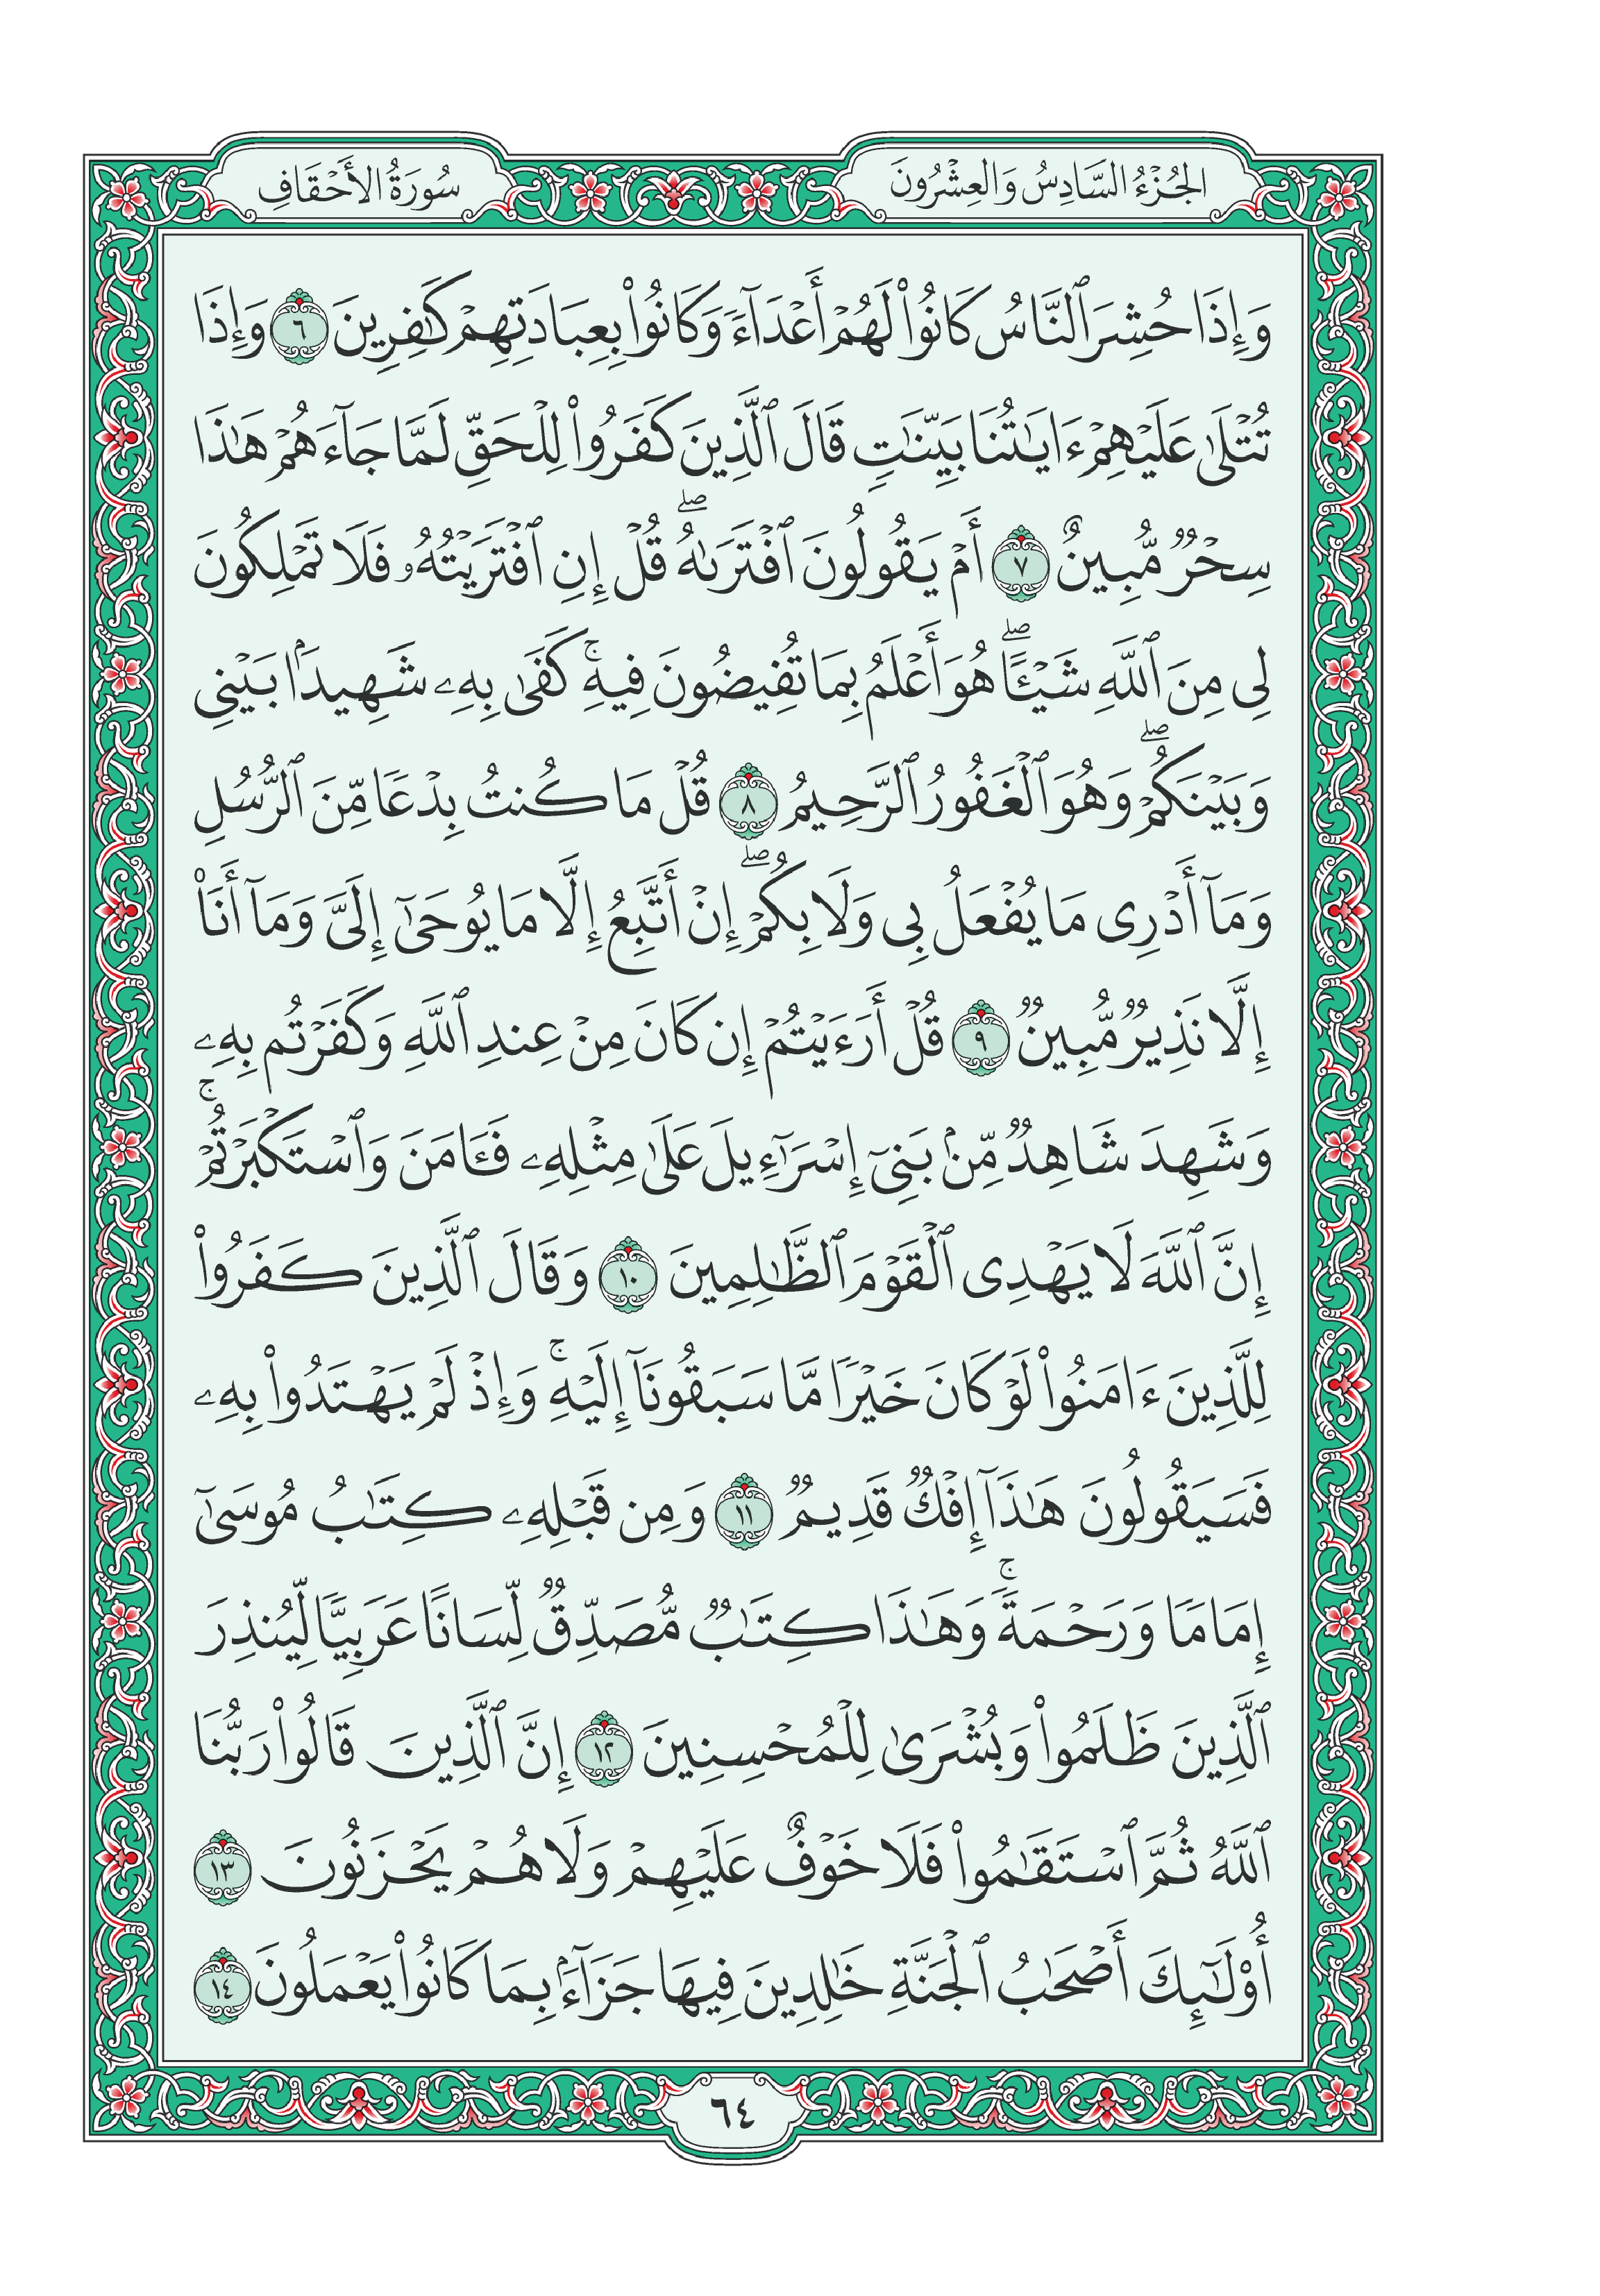 الجُزْءُ السَّادِسُ وَالعِشْرُونَ
سُورَةُ الأَحْقَافِ
وَإِذَا حُشِرَ ٱلنَّاسُ كَانُواْ لَهُمْ أَعْدَآءً وَكَانُواْ بِعِبَادَتِهِمْ كَٰفِرِينَ ٦ وَإِذَا
تُتْلَىٰ عَلَيْهِمْ ءَايَٰتُنَا بَيِّنَٰتٍ قَالَ ٱلَّذِينَ كَفَرُواْ لِلْحَقِّ لَمَّا جَآءَهُمْ هَٰذَا
سِحْرٌ مُّبِينٌ ٧ أَمْ يَقُولُونَ ٱفْتَرَىٰهُۖ قُلْ إِنِ ٱفْتَرَيْتُهُۥ فَلَا تَمْلِكُونَ
لِى مِنَ ٱللَّهِ شَيْـًٔاۖ هُوَ أَعْلَمُ بِمَا تُفِيضُونَ فِيهِۚ كَفَىٰ بِهِۦ شَهِيدَۢا بَيْنِى
وَبَيْنَكُمْۖ وَهُوَ ٱلْغَفُورُ ٱلرَّحِيمُ ٨ قُلْ مَا كُنتُ بِدْعًا مِّنَ ٱلرُّسُلِ
وَمَآ أَدْرِى مَا يُفْعَلُ بِى وَلَا بِكُمْۖ إِنْ أَتَّبِعُ إِلَّا مَا يُوحَىٰٓ إِلَىَّ وَمَآ أَنَا۠
إِلَّا نَذِيرٌ مُّبِينٌ ٩ قُلْ أَرَءَيْتُمْ إِن كَانَ مِنْ عِندِ ٱللَّهِ وَكَفَرْتُم بِهِۦ
وَشَهِدَ شَاهِدٌ مِّنۢ بَنِىٓ إِسْرَٰٓءِيلَ عَلَىٰ مِثْلِهِۦ فَـَٔامَنَ وَٱسْتَكْبَرْتُمْۚ
إِنَّ ٱللَّهَ لَا يَهْدِى ٱلْقَوْمَ ٱلظَّٰلِمِينَ ١٠ وَقَالَ ٱلَّذِينَ كَفَرُواْ
لِلَّذِينَ ءَامَنُواْ لَوْ كَانَ خَيْرًا مَّا سَبَقُونَآ إِلَيْهِۚ وَإِذْ لَمْ يَهْتَدُواْ بِهِۦ
فَسَيَقُولُونَ هَٰذَآ إِفْكٌ قَدِيمٌ ١١ وَمِن قَبْلِهِۦ كِتَٰبُ مُوسَىٰٓ
إِمَامًا وَرَحْمَةًۚ وَهَٰذَا كِتَٰبٌ مُّصَدِّقٌ لِّسَانًا عَرَبِيًّا لِّيُنذِرَ
ٱلَّذِينَ ظَلَمُواْ وَبُشْرَىٰ لِلْمُحْسِنِينَ ١٢ إِنَّ ٱلَّذِينَ قَالُواْ رَبُّنَا
ٱللَّهُ ثُمَّ ٱسْتَقَٰمُواْ فَلَا خَوْفٌ عَلَيْهِمْ وَلَا هُمْ يَحْزَنُونَ ١٣
أُوْلَٰٓئِكَ أَصْحَٰبُ ٱلْجَنَّةِ خَٰلِدِينَ فِيهَا جَزَآءَۢ بِمَا كَانُواْ يَعْمَلُونَ ١٤
٦٤